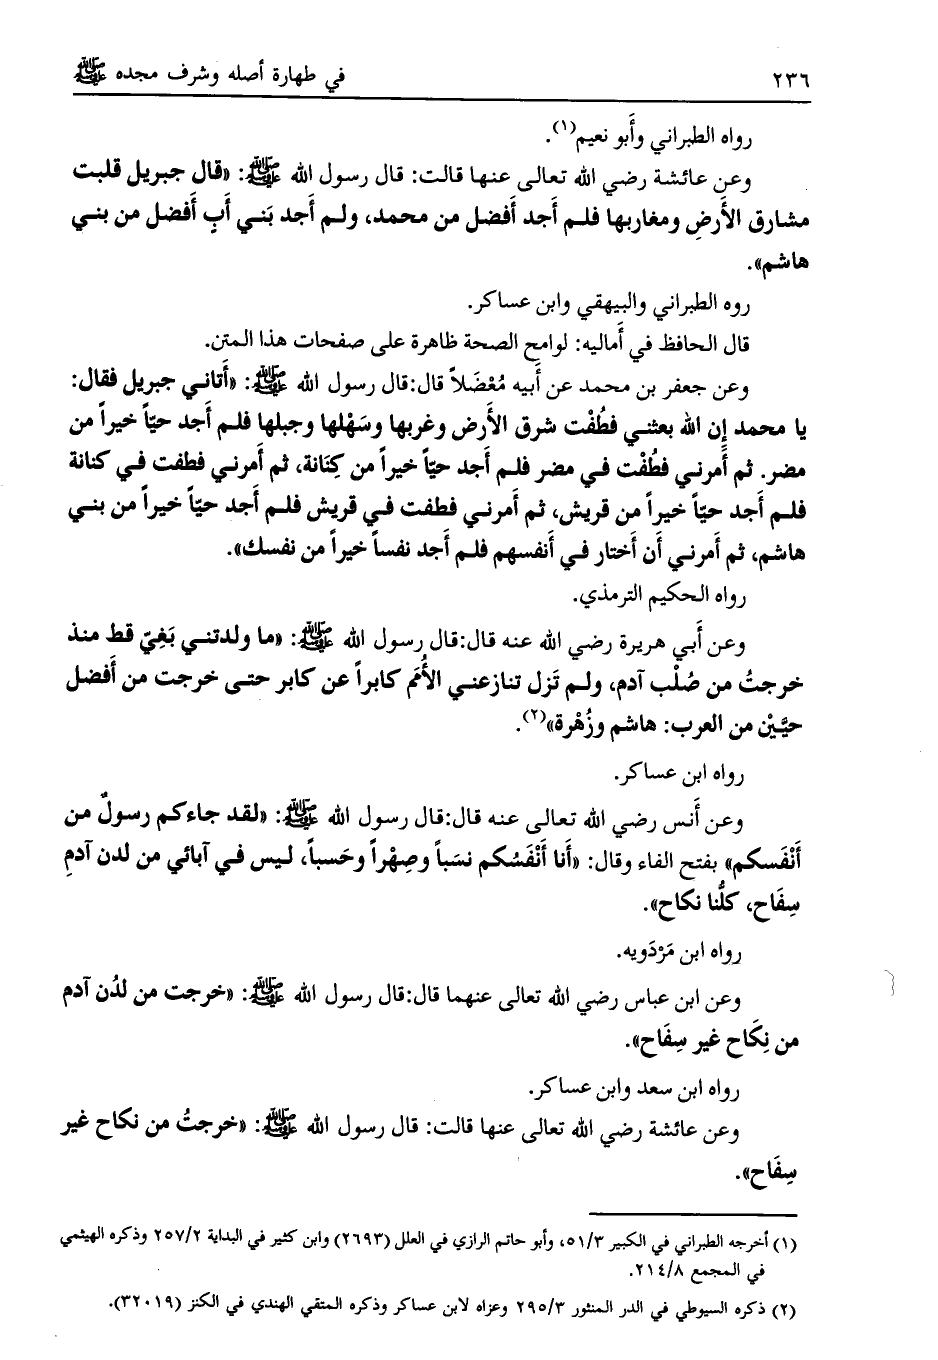 ٢٣٦ في طهارة أصله وشرف مجده ﷺ
رواه الطبراني وأَبو نعيم(١).
وعن عائشة رضي الله تعالى عنها قالت: قال رسول الله ﷺ: «قال جبريل قلبت
مشارق الأَرضِ ومغاربها فلم أَجد أَفضل من محمد، ولم أَجد بَني أَبٍ أَفضل من بني
هاشم».
روه الطبراني والبيهقي وابن عساكر.
قال الحافظ في أَماليه: لوامح الصحة ظاهرة على صفحات هذا المتن.
وعن جعفر بن محمد عن أَبيه مُعْضَلاً قال:قال رسول الله ﷺ: «أَتاني جبريل فقال:
يا محمد إِن الله بعثني فطُفْت شرق الأَرض وغربها وسَهْلها وجبلها فلم أَجد حيّاً خيراً من
مضر. ثم أَمرني فطُفْت في مضر فلم أَجد حيّاً خيراً من كِنَانة، ثم أَمرني فطفت في كنانة
فلم أَجد حيّاً خيراً من قريش، ثم أَمرني فطفت في قريش فلم أَجد حيّاً خيراً من بني
هاشم، ثم أَمرني أَن أَختار في أَنفسهم فلم أَجد نفساً خيراً من نفسك».
رواه الحكيم الترمذي.
وعن أَبي هريرة رضي الله عنه قال:قال رسول الله ﷺ: «ما ولدتني بَغِيّ قط منذ
خرجتُ من صُلْب آدم، ولم تَزل تنازعني الأُمَم كابراً عن كابر حتى خرجت من أَفضل
حيَّيْن من العرب: هاشم وزُهْرة»(٢).
رواه ابن عساكر.
وعن أَنس رضي الله تعالى عنه قال:قال رسول الله ﷺ: «لقد جاءكم رسولٌ من
أَنْفَسكم» بفتح الفاء وقال: «أَنا أَنْفَسُكم نسَباً وصِهْراً وحَسباً، ليس في آبائي من لدن آدمِ
سِفَاح، كلُّنا نكاح».
رواه ابن مَرْدَويه.
وعن ابن عباس رضي الله تعالى عنهما قال:قال رسول الله ﷺ: «خرجت من لدُن آدم
من نِكَاح غير سِفَاح».
رواه ابن سعد وابن عساكر.
وعن عائشة رضي الله تعالى عنها قالت: قال رسول الله ﷺ: «خرجتُ من نكاح غير
سِفَاح».
(١) أخرجه الطبراني في الكبير ٥١/٣، وأبو حاتم الرازي في العلل (٢٦٩٣) وابن كثير في البداية ٢٥٧/٢ وذكره الهيثمي
في المجمع ٢١٤/٨.
(٢) ذكره السيوطي في الدر المنثور ٢٩٥/٣ وعزاه لابن عساكر وذكره المتقي الهندي في الكنز (٣٢٠١٩).